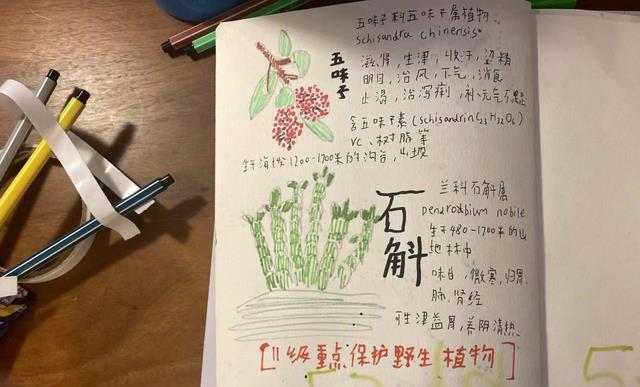 五味子科五味子属植物
schisandra chinensis
五味子
滋肾，生津，收汗，涩精
明目，治风，下气，消食
止渴，治泻痢，补元气不足
含五味子素（schisandrin C23H32O6）
VC、树脂等
生于海拔1200-1700米的沟谷，山坡
石斛
兰科石斛属
Dendrodbium nobile
生于480-1700米的山
地林中
味甘，微寒，归胃.
肺.肾经
可生津益胃，养阴清热.
[II级重点保护野生植物]